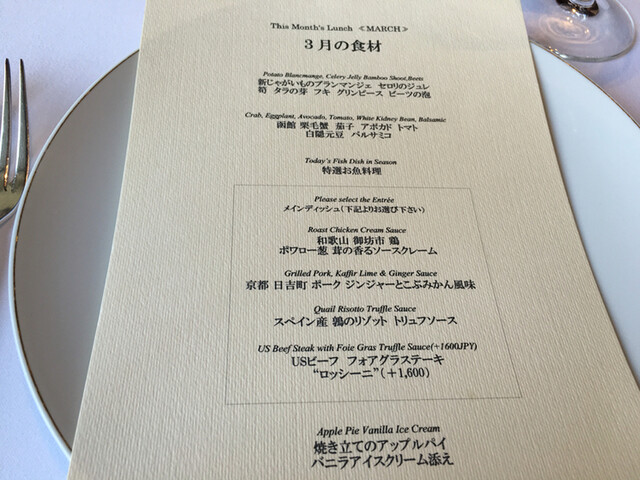 This Month's Lunch ≪MARCH≫
３月の食材
Potato Blancmange, Celery Jelly Bamboo Shoot,Beets
新じゃがいものブランマンジェ セロリのジュレ
筍 タラの芽 フキ グリンピース ビーツの泡
Crab, Eggplant, Avocado, Tomato, White Kidney Bean, Balsamic
函館 栗毛蟹 茄子 アボカド トマト
白隠元豆 バルサミコ
Today's Fish Dish in Season
特選お魚料理
Please select the Entrée
メインディッシュ（下記よりお選び下さい）
Roast Chicken Cream Sauce
和歌山 御坊市 鶏
ポワロー葱 茸の香るソースクレーム
Grilled Pork, Kaffir Lime & Ginger Sauce
京都 日吉町 ポーク ジンジャーとこぶみかん風味
Quail Risotto Truffle Sauce
スペイン産 鶉のリゾット トリュフソース
US Beef Steak with Foie Gras Truffle Sauce(+1600JPY)
USビーフ フォアグラステーキ
“ロッシーニ”（＋1,600）
Apple Pie Vanilla Ice Cream
焼き立てのアップルパイ
バニラアイスクリーム添え